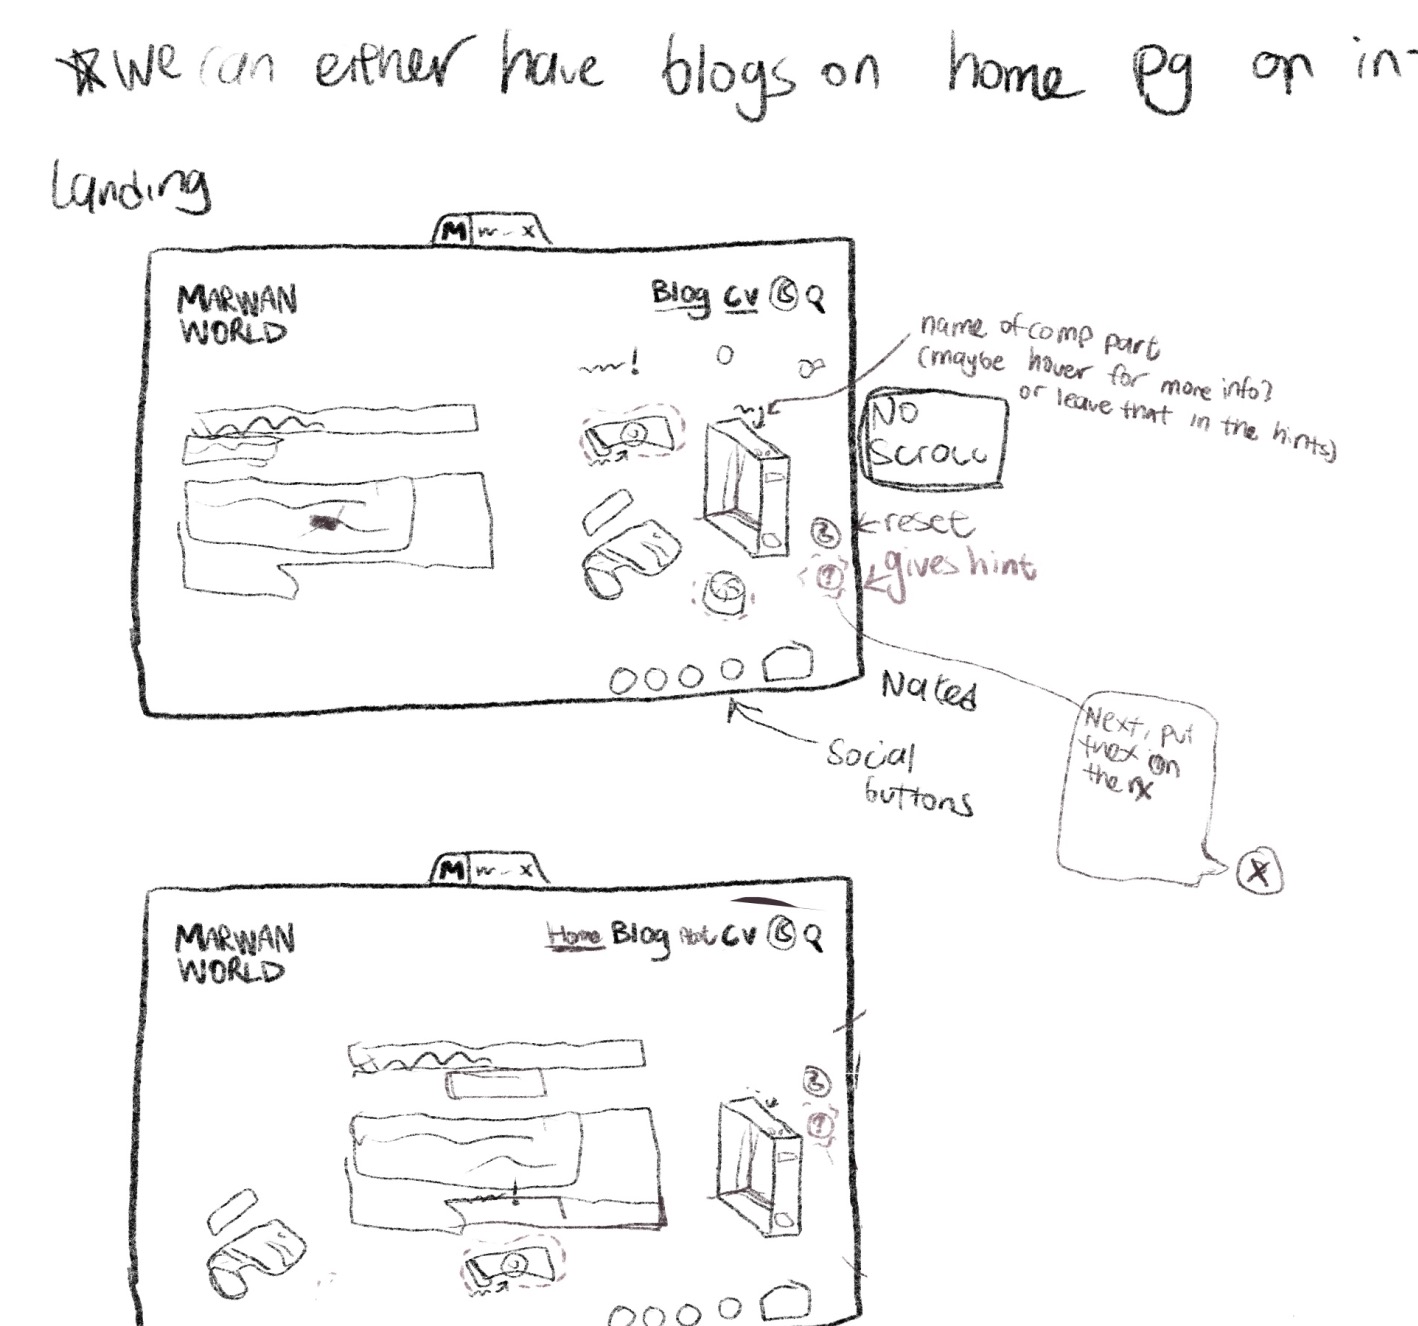 We can either have blogs on home pg or in-
Landing
M
MARWAN
WORLD
Blog CV
name of comp part
(maybe hover for more info?
or leave that in the hints)
NO
SCROLL
reset
gives hint
?
Social
buttons
Next, put
the x on
the x
X
M
MARWAN
WORLD
Home Blog CV
?